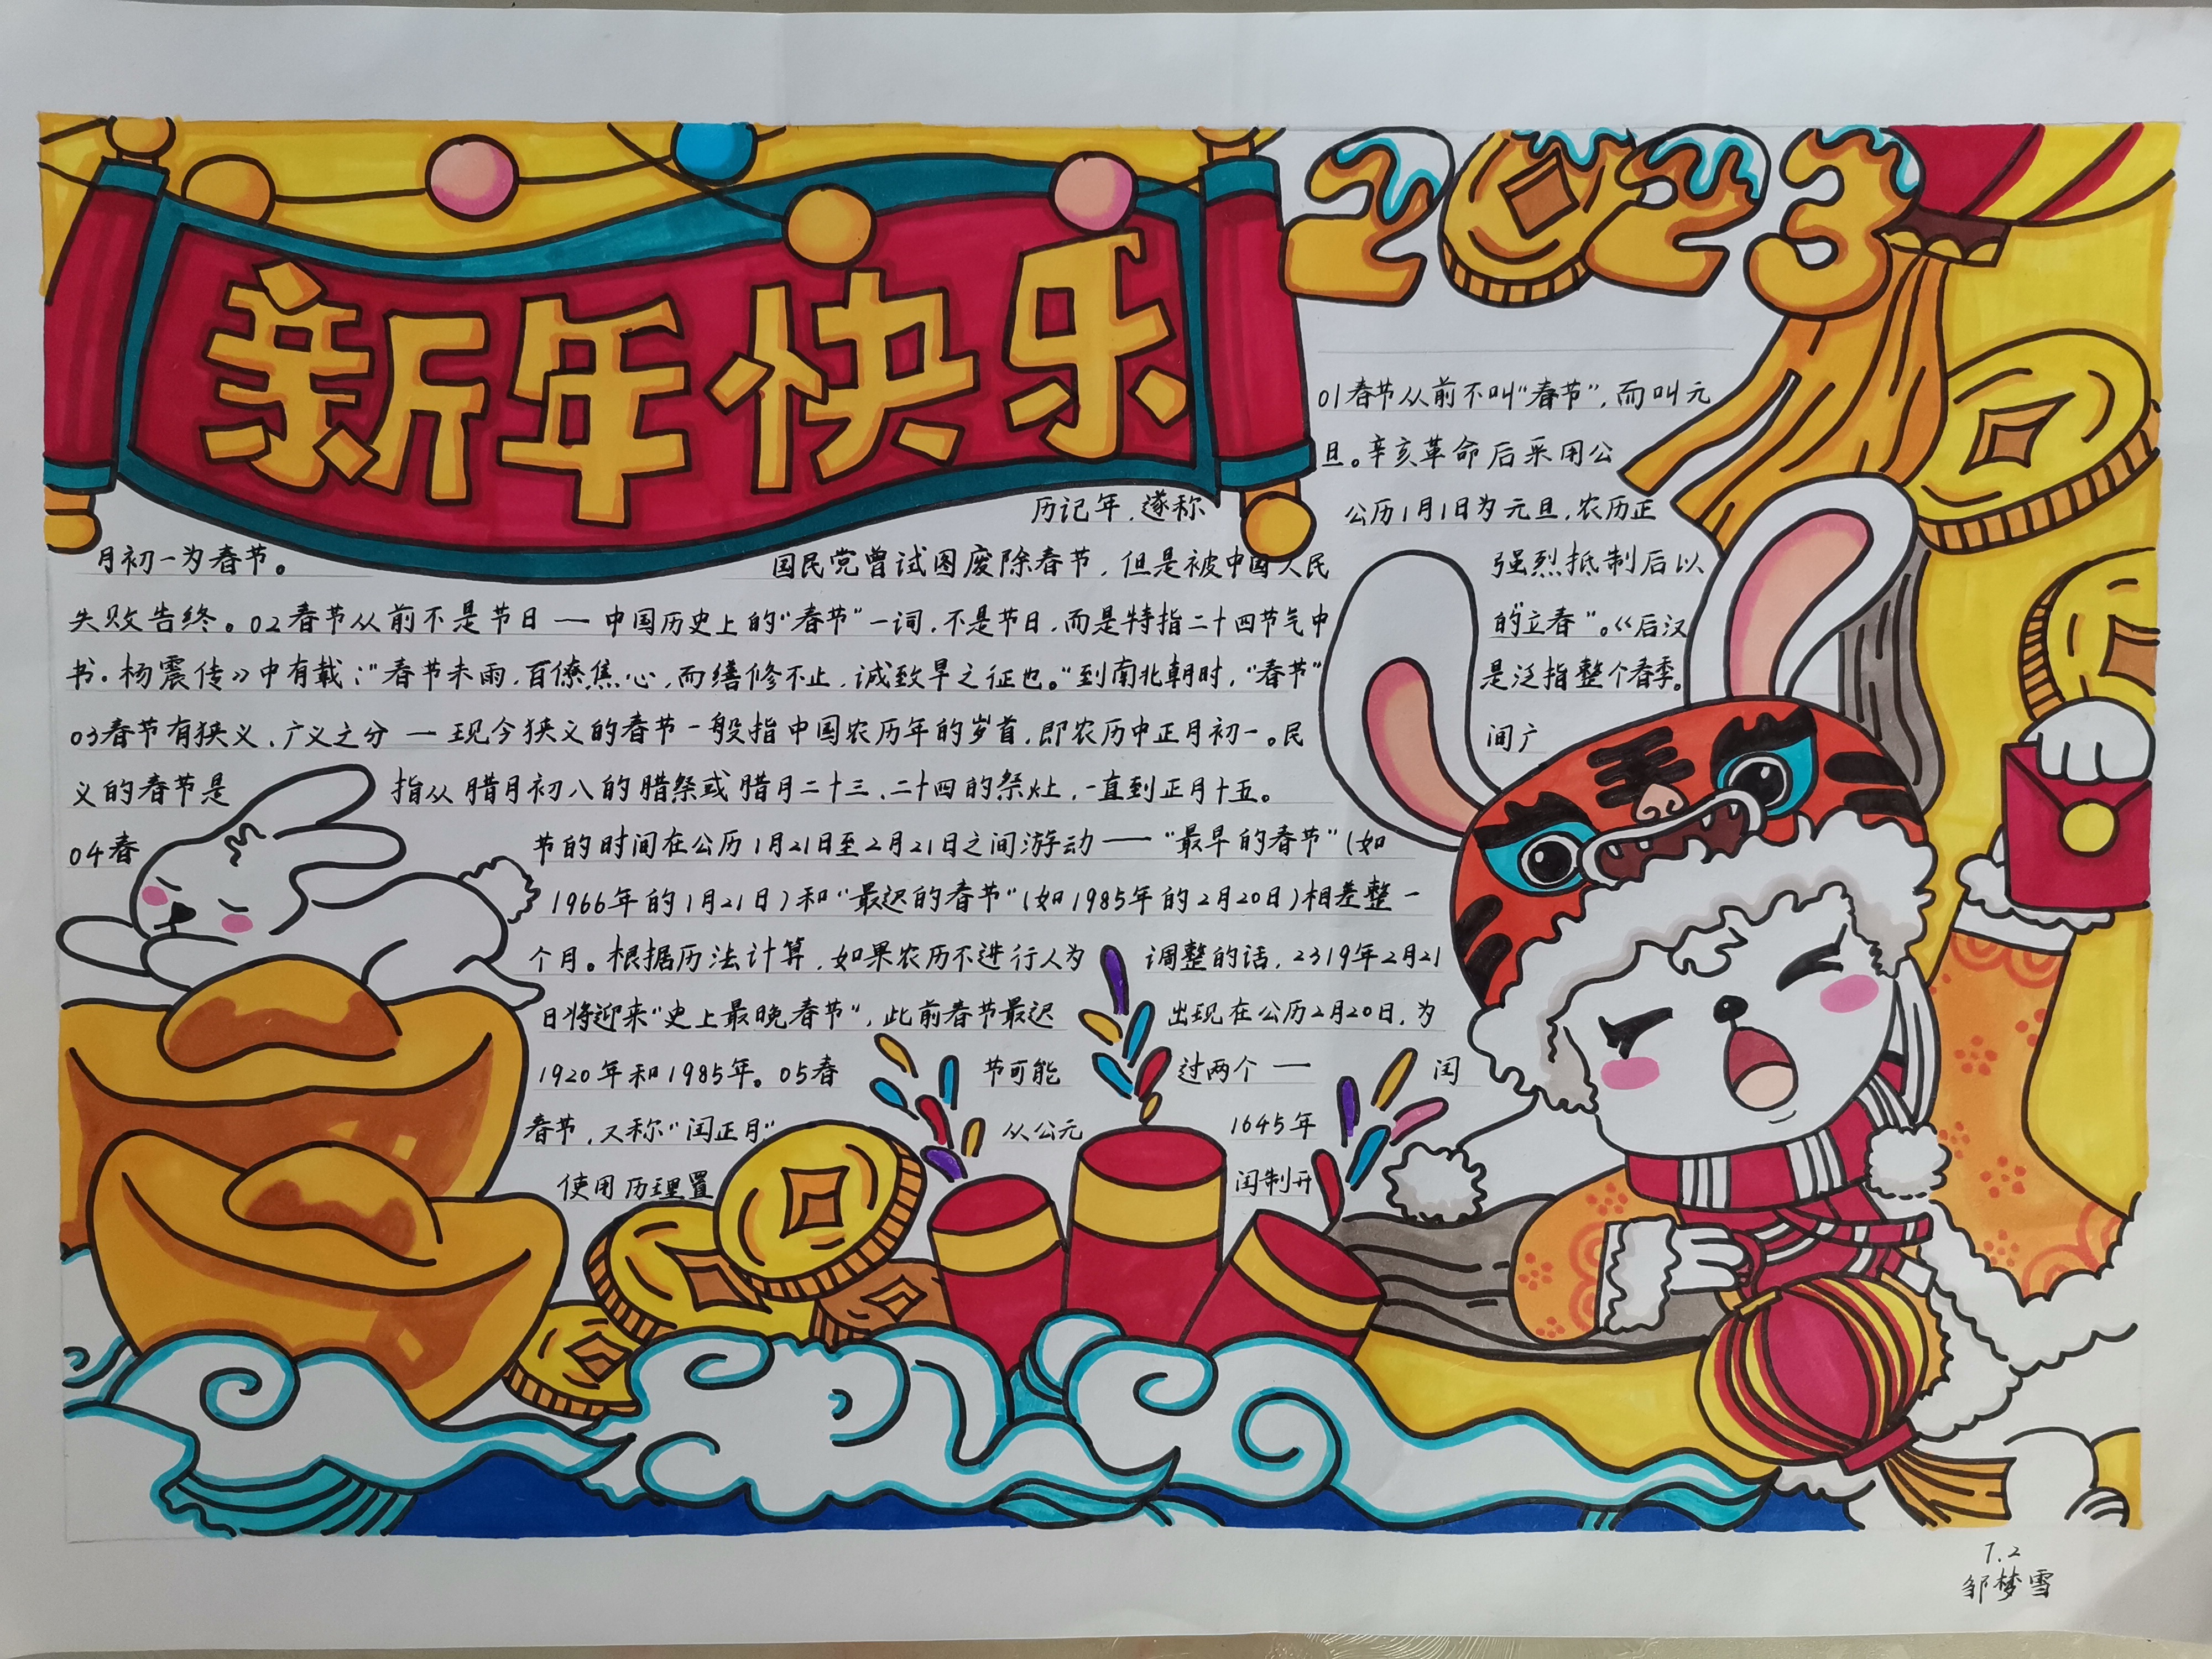 新年快乐
2023
01春节从前不叫“春节”,而叫元
旦。辛亥革命后采用公
历记年,遂称 公历1月1日为元旦,农历正
月初一为春节。 国民党曾试图废除春节,但是被中国人民 强烈抵制后以
失败告终。02春节从前不是节日——中国历史上的“春节”一词,不是节日,而是特指二十四节气中 的“立春”。《后汉
书。杨震传》中有载:“春节未雨,百僚焦心,而缮修不止,诚致旱之征也。”到南北朝时,“春节” 是泛指整个春季。
03春节有狭义、广义之分——现今狭义的春节一般指中国农历年的岁首,即农历中正月初一。民 间广
义的春节是 指从腊月初八的腊祭或腊月二十三、二十四的祭灶,一直到正月十五。
04春 节的时间在公历1月21日至2月21日之间游动——“最早的春节”(如
1966年的1月21日)和“最迟的春节”(如1985年的2月20日)相差整一
个月。根据历法计算,如果农历不进行人为 调整的话,2319年2月21
日将迎来“史上最晚春节”,此前春节最迟 出现在公历2月20日,为
1920年和1985年。05春 节可能 过两个— 闰
春节,又称“闰正月” 从公元 1645年
使用历理置 闰制开
7.2
邹梦雪